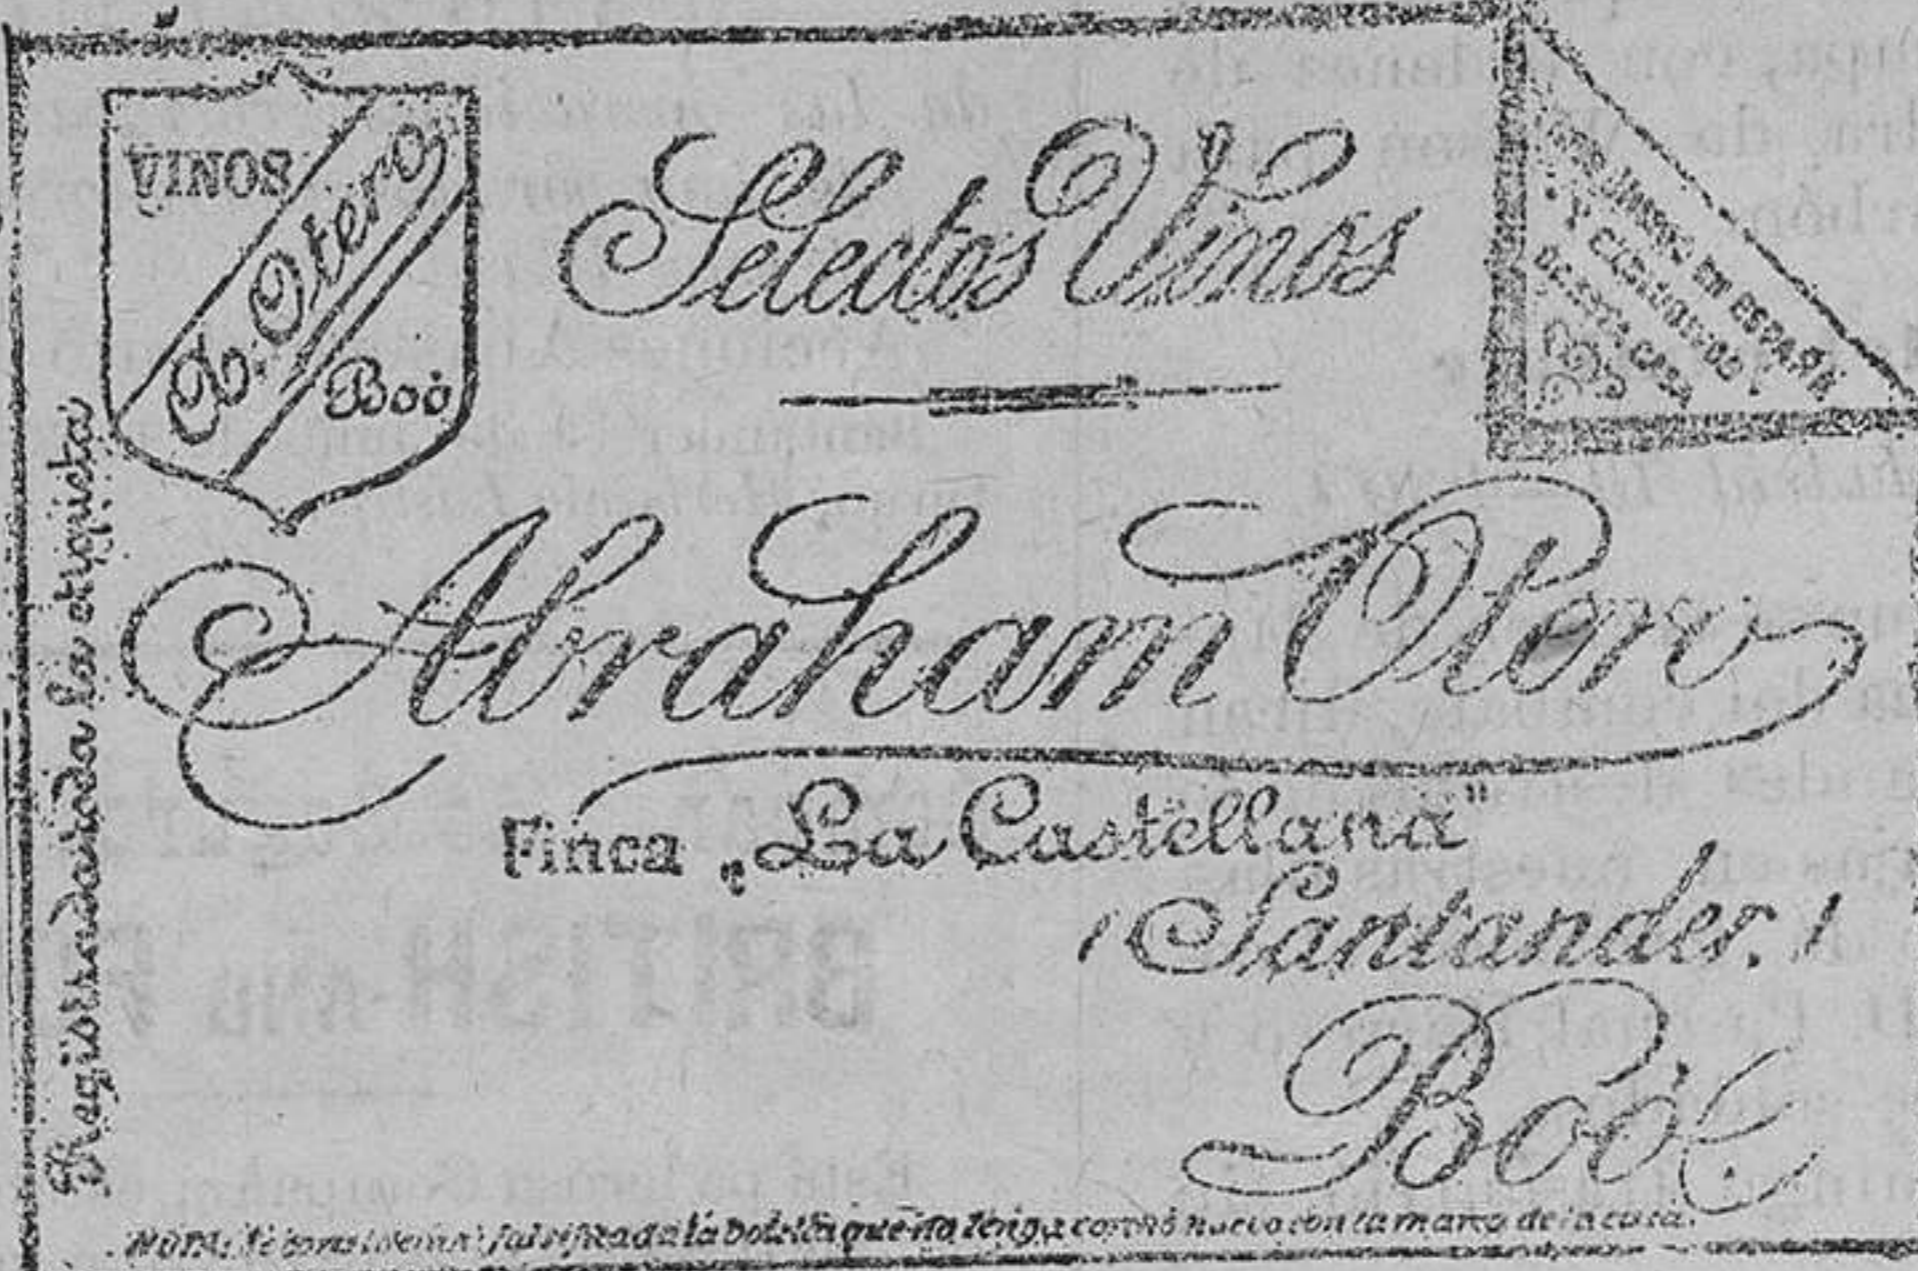 VINOS
A. Otero
Boó
Selectos Vinos
EN ESPAÑA
Y
DE ESTA CASA
Abraham Otero
Finca „La Castellana"
(Santander.)
Boó
Registrada la etiqueta
NOTA: Se considerará falsificada la botella que no tenga corcho nuevo con la marca de la casa.